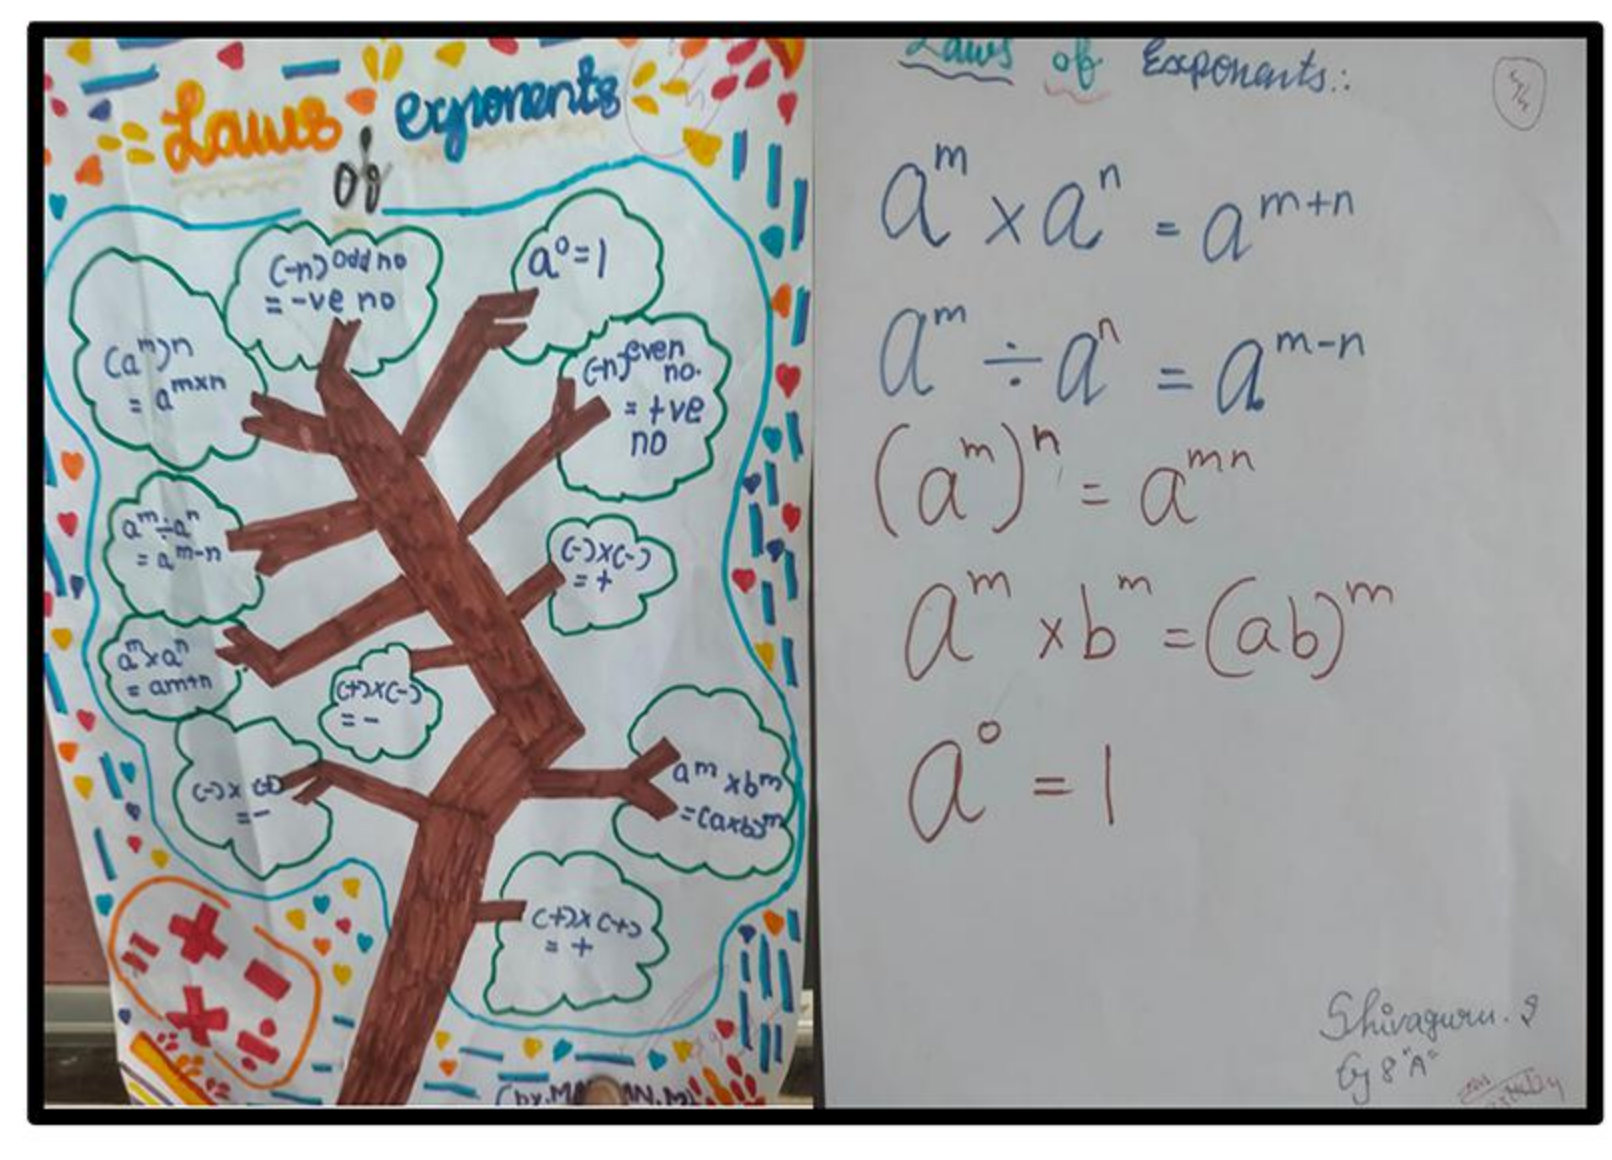 Laws of exponents
(-n)odd no
= -ve no
a⁰=1
(aᵐ)n
= aᵐˣⁿ
(-n)even
no.
= +ve
no
aᵐ÷aⁿ
= aᵐ⁻ⁿ
(-)×(-)
= +
aᵐ×aⁿ
= am+n
(+)×(-)
= -
(-)×(+)
= -
aᵐ×bᵐ
=(a×b)ᵐ
(+)×(+)
= +
Laws of Exponents:.
aᵐ × aⁿ = aᵐ⁺ⁿ
aᵐ ÷ aⁿ = aᵐ⁻ⁿ
(aᵐ)ⁿ = aᵐⁿ
aᵐ × bᵐ = (ab)ᵐ
a⁰ = 1
Shivaguru. S
8 "A"